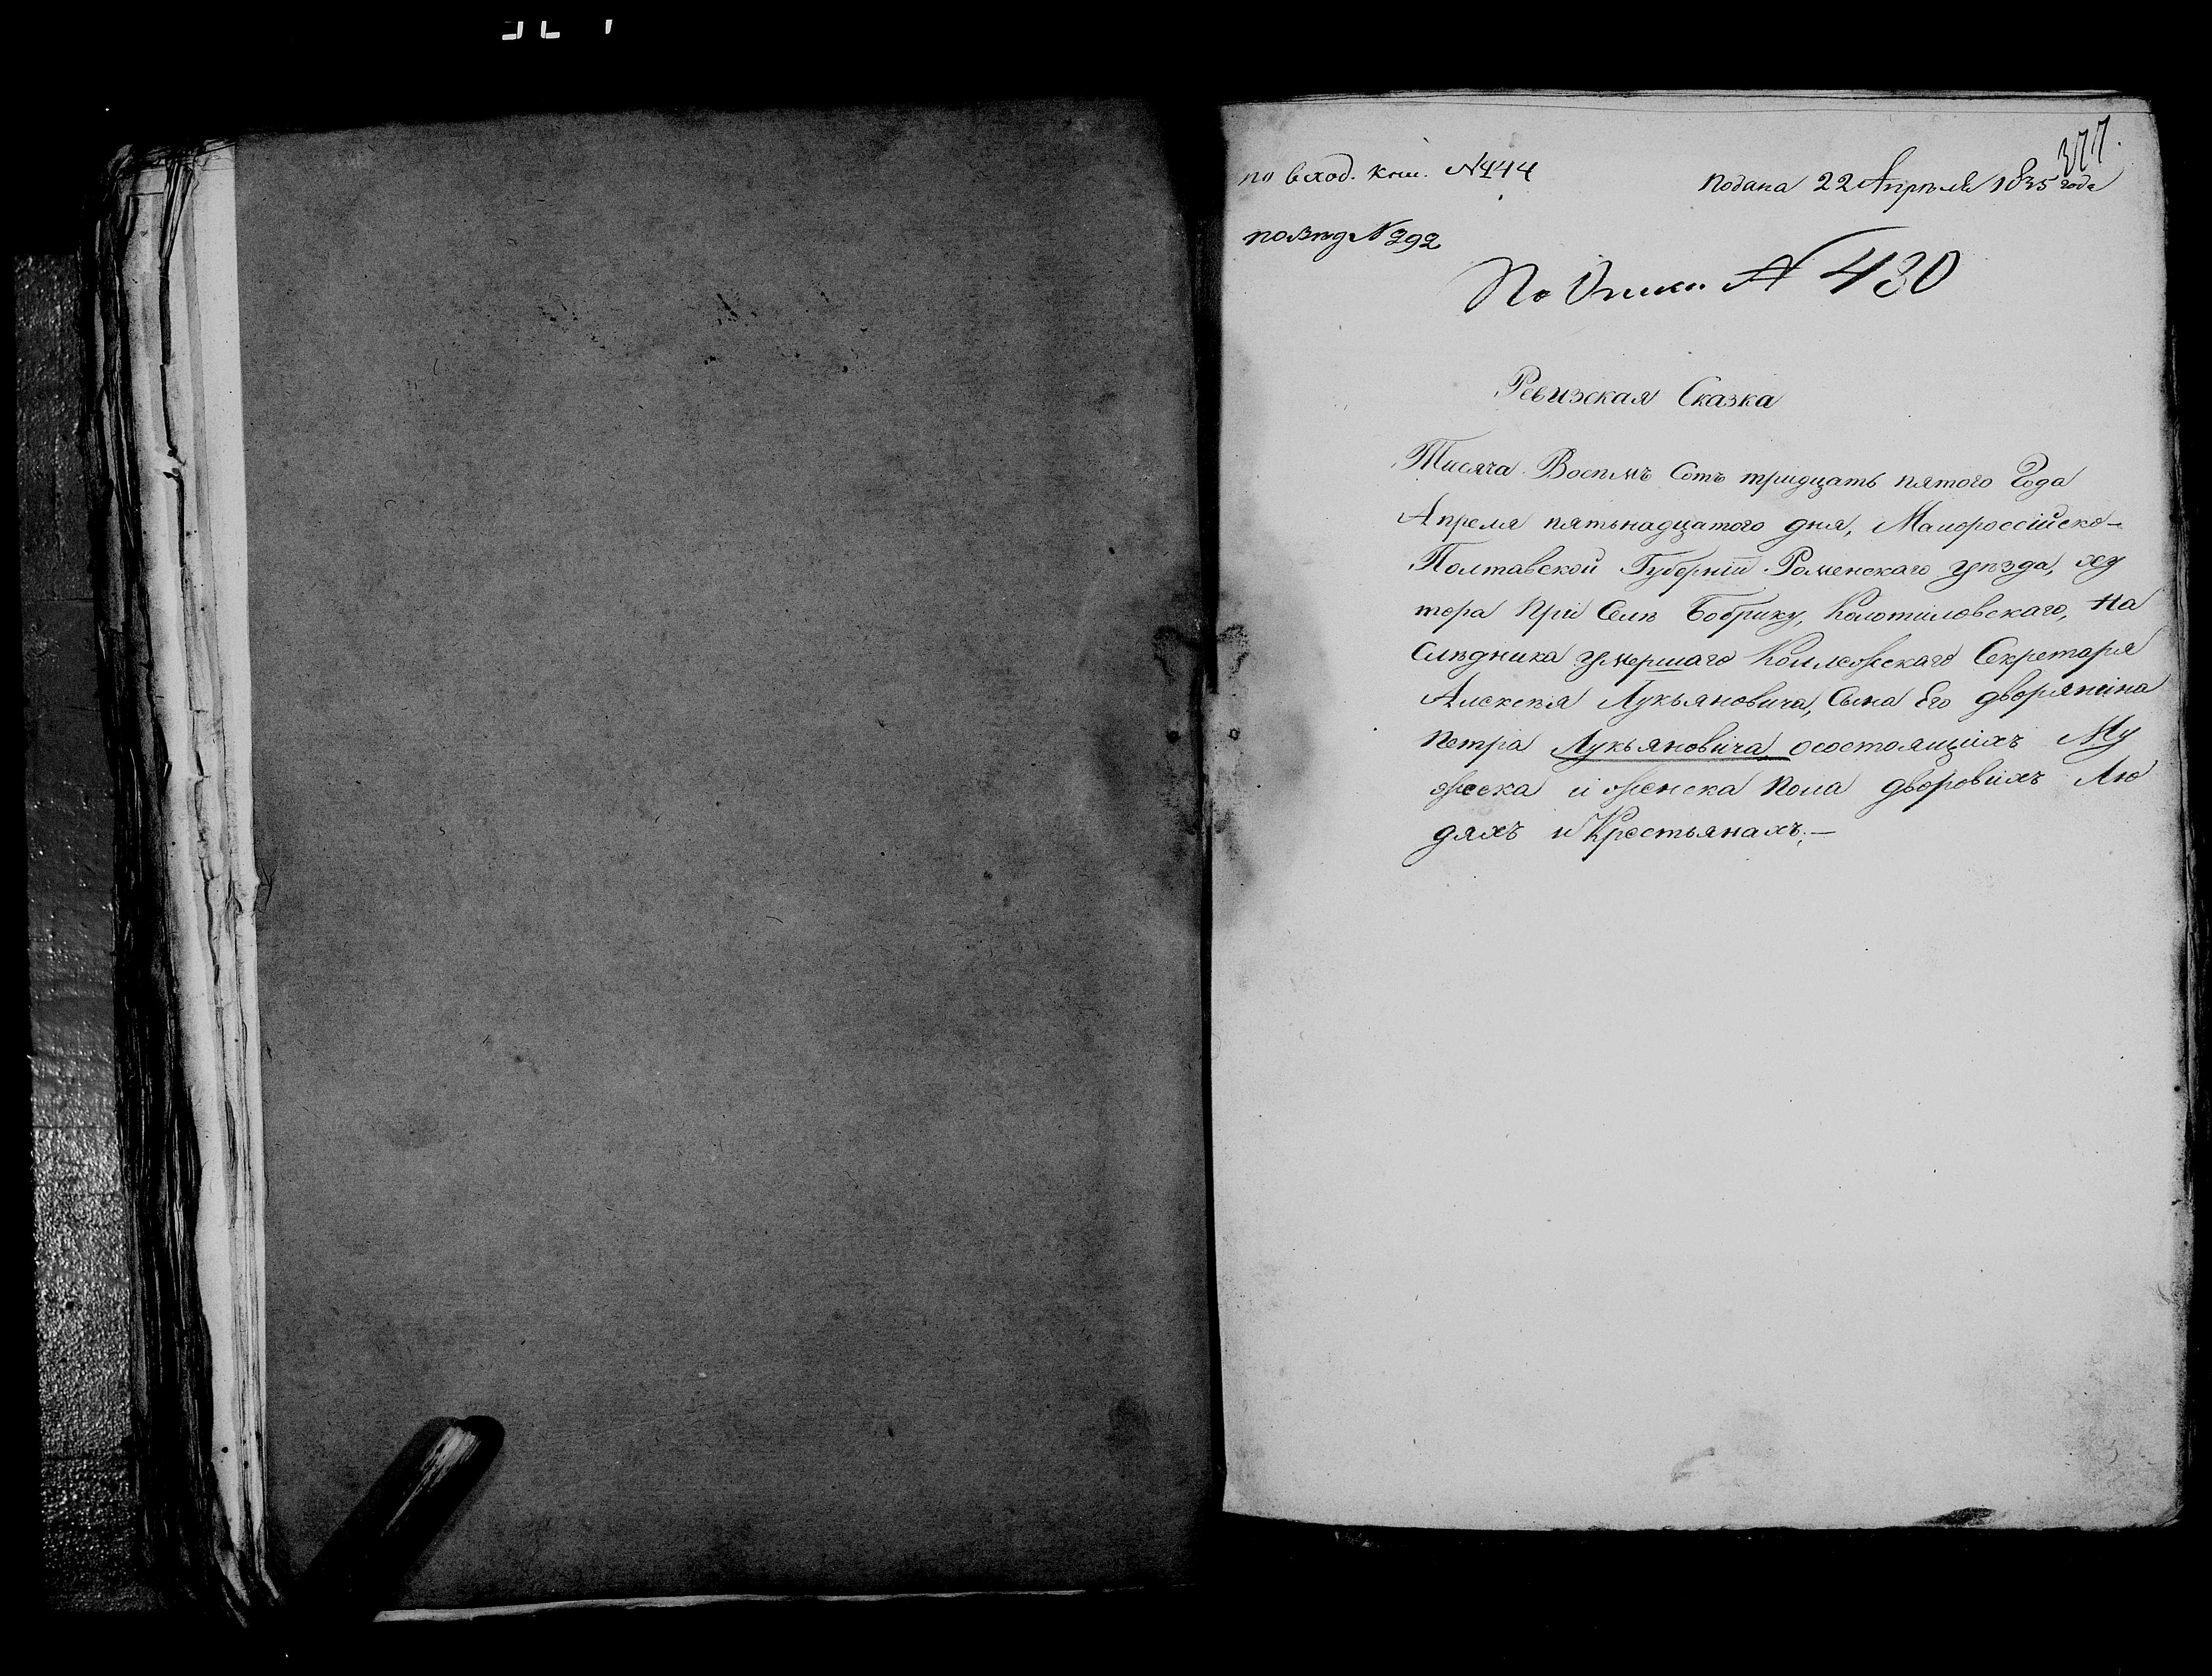 377.
по вход. кни. №444
подана 22 Апрѣля 1835 года
по алф № 292
По Описи № 430
Ревизская Сказка
Тисяча Восимъ Сотъ тридцать пятого Года
Апреля пятьнадцатого дня, Малороссійско-
Полтавской Губерніи Роменскаго уѣзда, ху
тора при Селѣ Бобрику, Колотиловскаго, На
слѣдника умершаго Коллежскаго Секретаря
Алексѣя Лукьяновича, Сына Его дворянина
Петра Лукьяновича осостоящихъ Му
жеска и женска пола дворовихъ Лю
дяхъ и Крестьянахъ.—